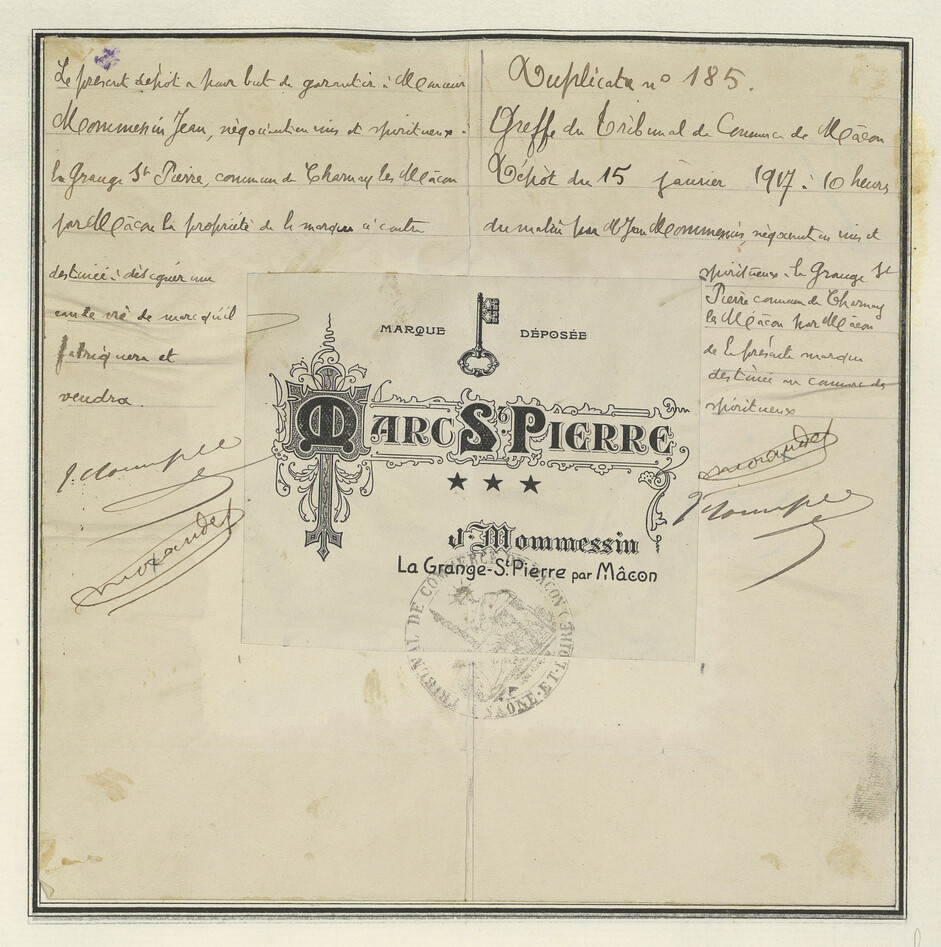 Le présent dépôt a pour but de garantir à Monsieur
Mommessin Jean, négociant en vins et spiritueux à
la Grange St Pierre, commune de Charnay les Mâcon
par Mâcon la propriété de la marque ci contre
destinée à désigner une
eau de vie de marc qu'il
fabriquera et
vendra.
Morandet
Duplicata n° 185.
Greffe du Tribunal de Commerce de Mâcon
Dépôt du 15 janvier 1917 à 10 heures
du matin par Mr Jean Mommessin, négociant en vins et
spiritueux à la Grange St
Pierre commune de Charnay
les Mâcon par Mâcon
de la présente marque
destinée au commerce des
spiritueux
Morandet
MARQUE DÉPOSÉE
MARC ST PIERRE
★ ★ ★
J. Mommessin
La Grange-St Pierre par Mâcon
TRIBUNAL DE COMMERCE DE MACON (SAÔNE-ET-LOIRE)